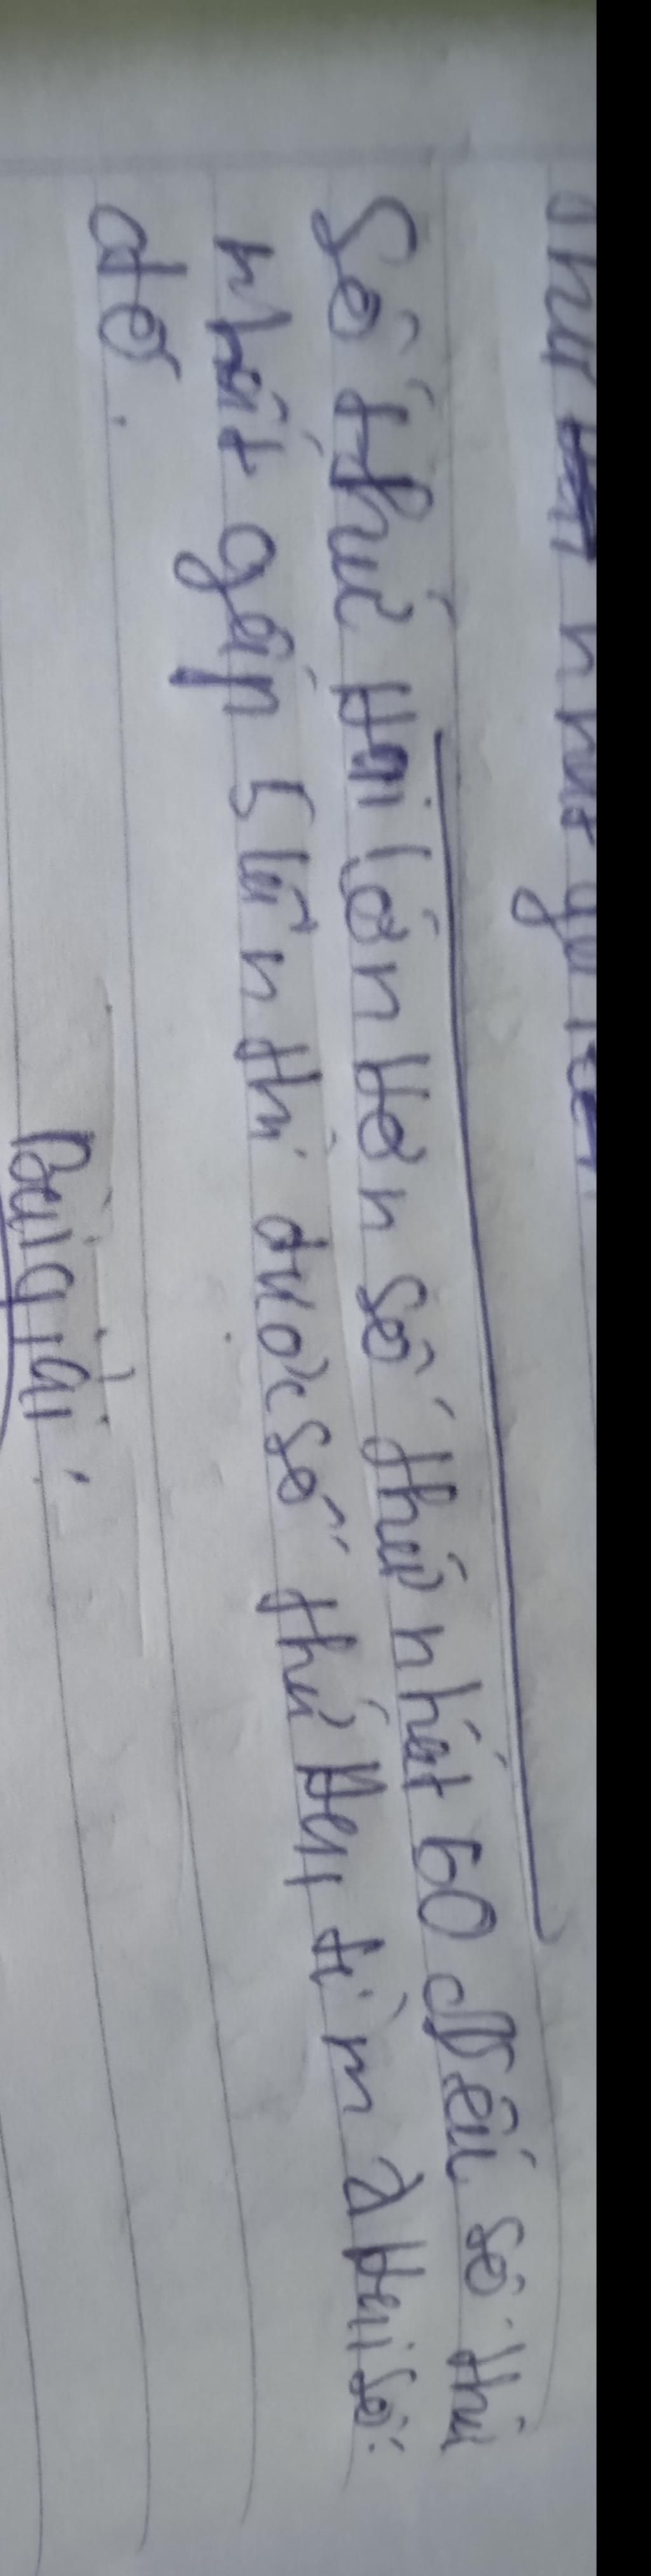 Số thứ hai lớn hơn số thứ nhất 60 Nếu số thứ
nhất gấp 5 lần thì được số thứ hai tìm 2 hai số
đó.
Bài giải